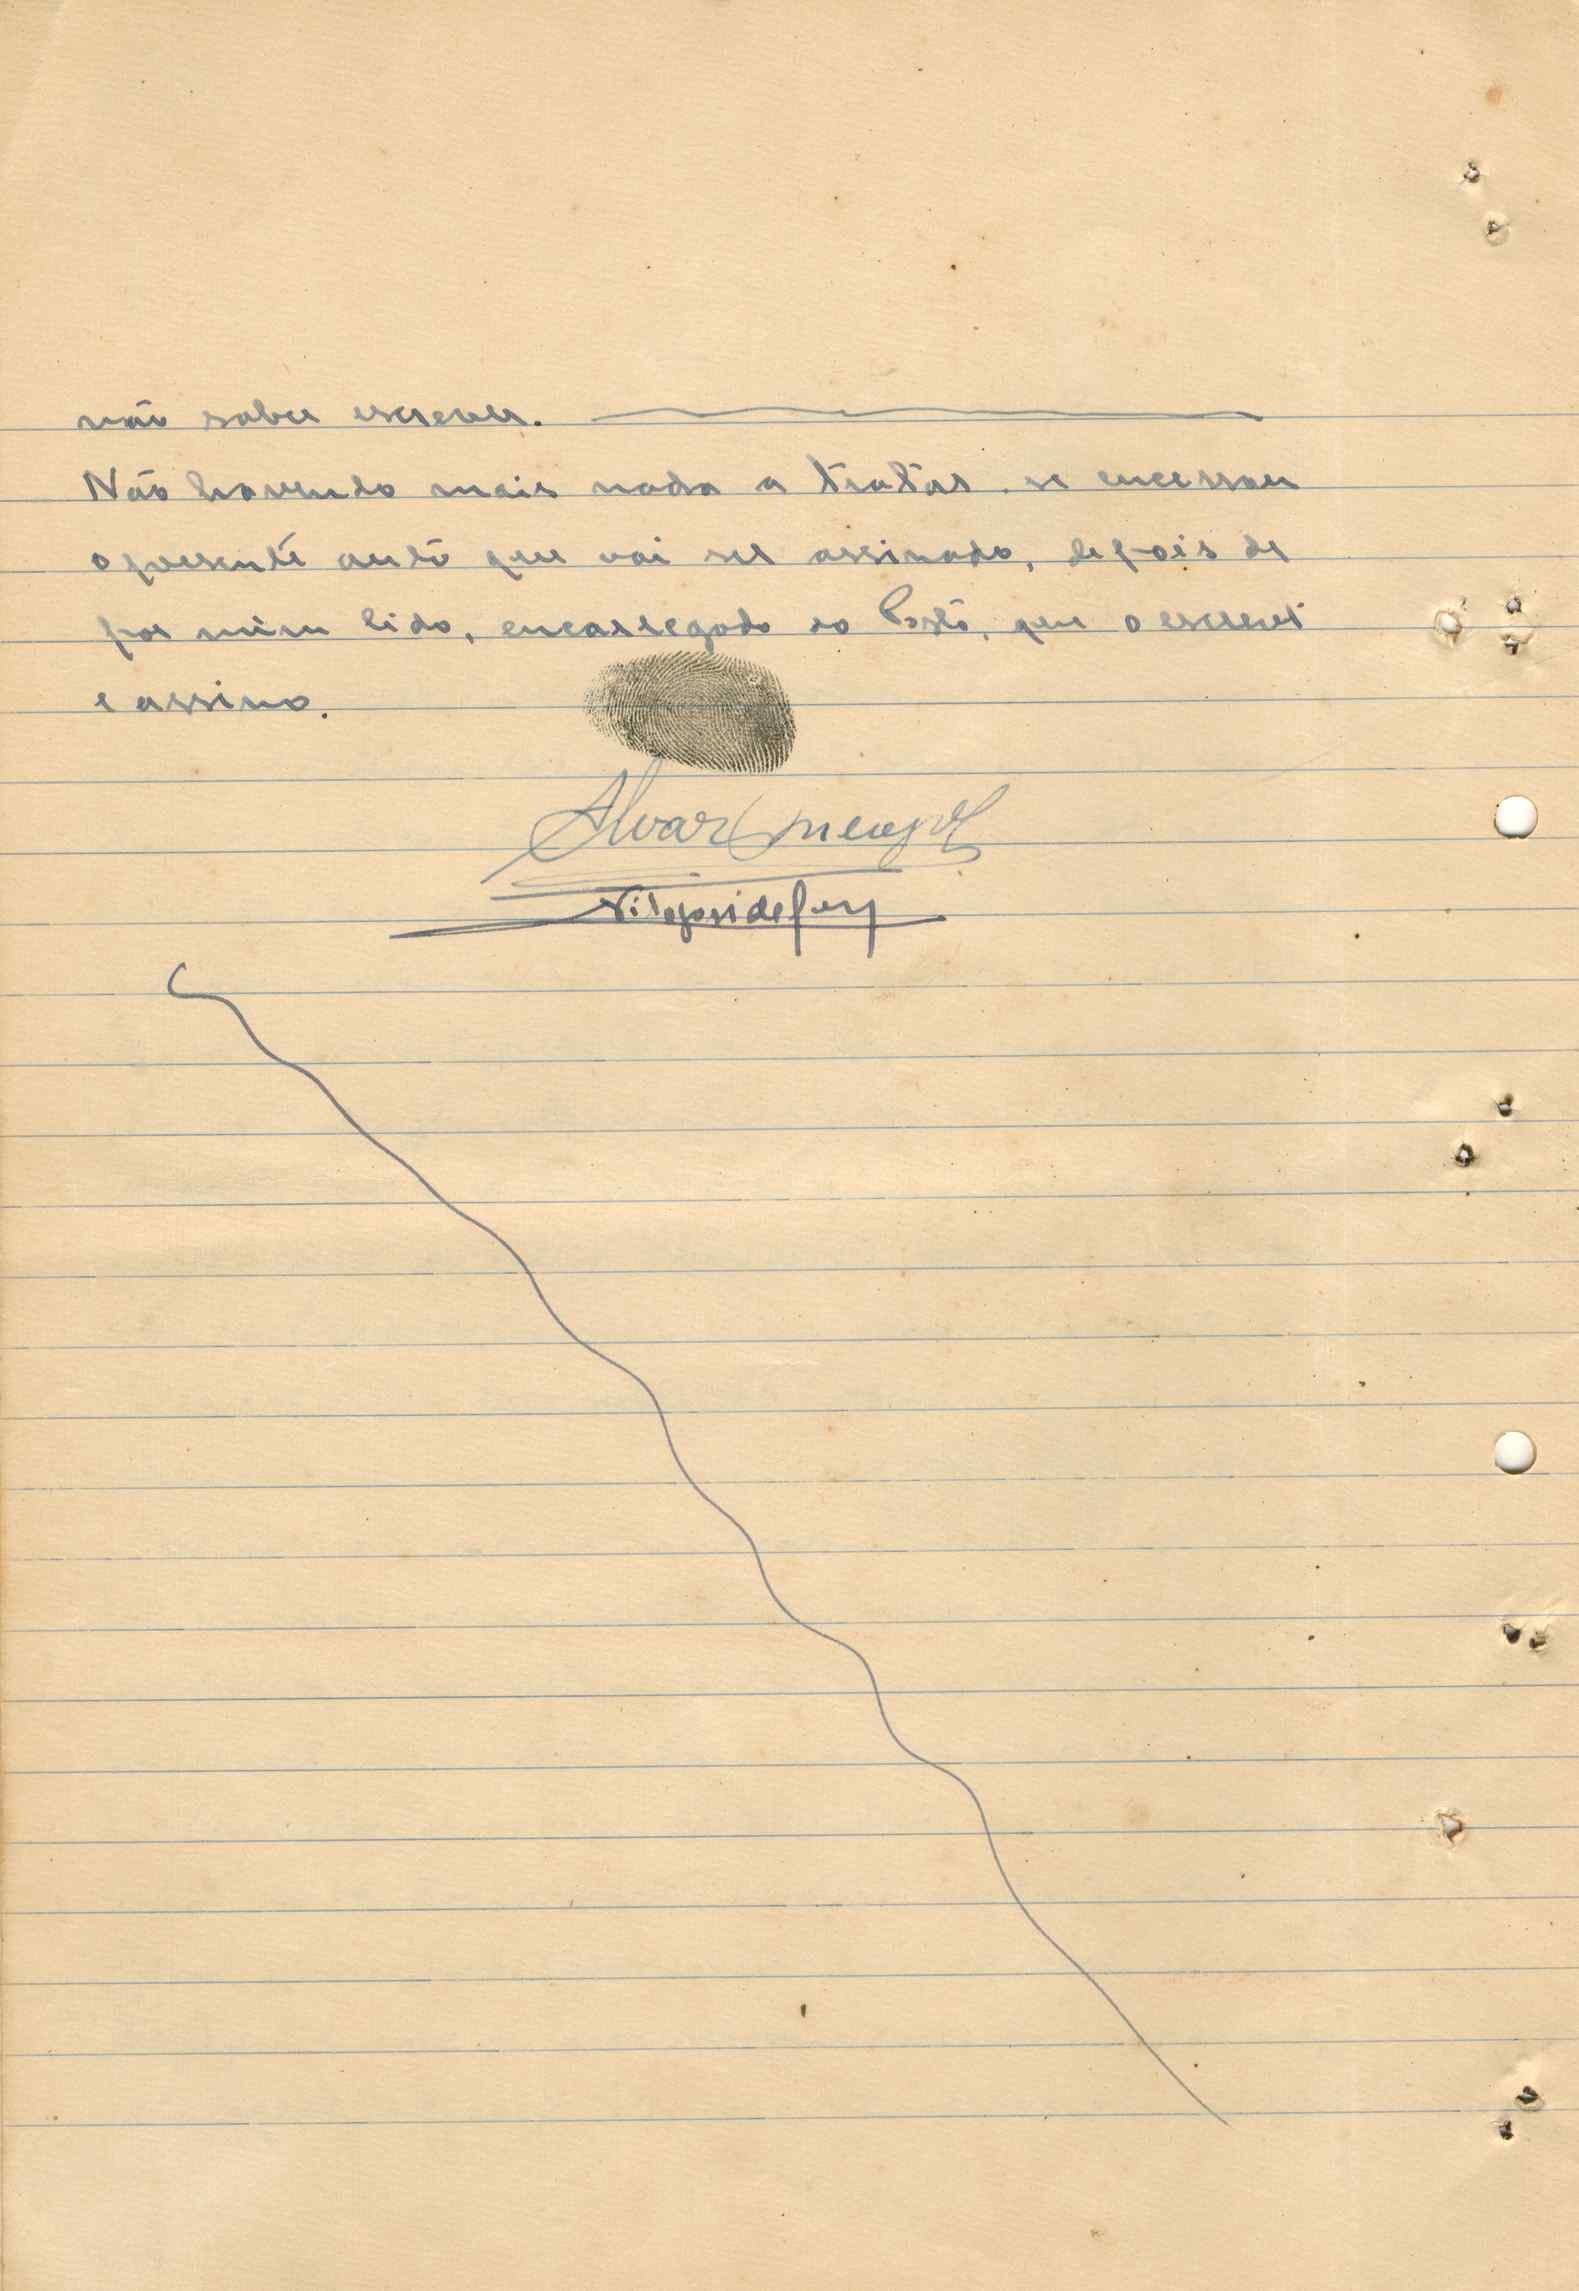 não saber escrever.
Não havendo mais nada a tratar se encerrou
o presente auto que vai ser assinado, depois de
por mim lido, encarregado do Posto, que o escrevi
e assino.
Alvar